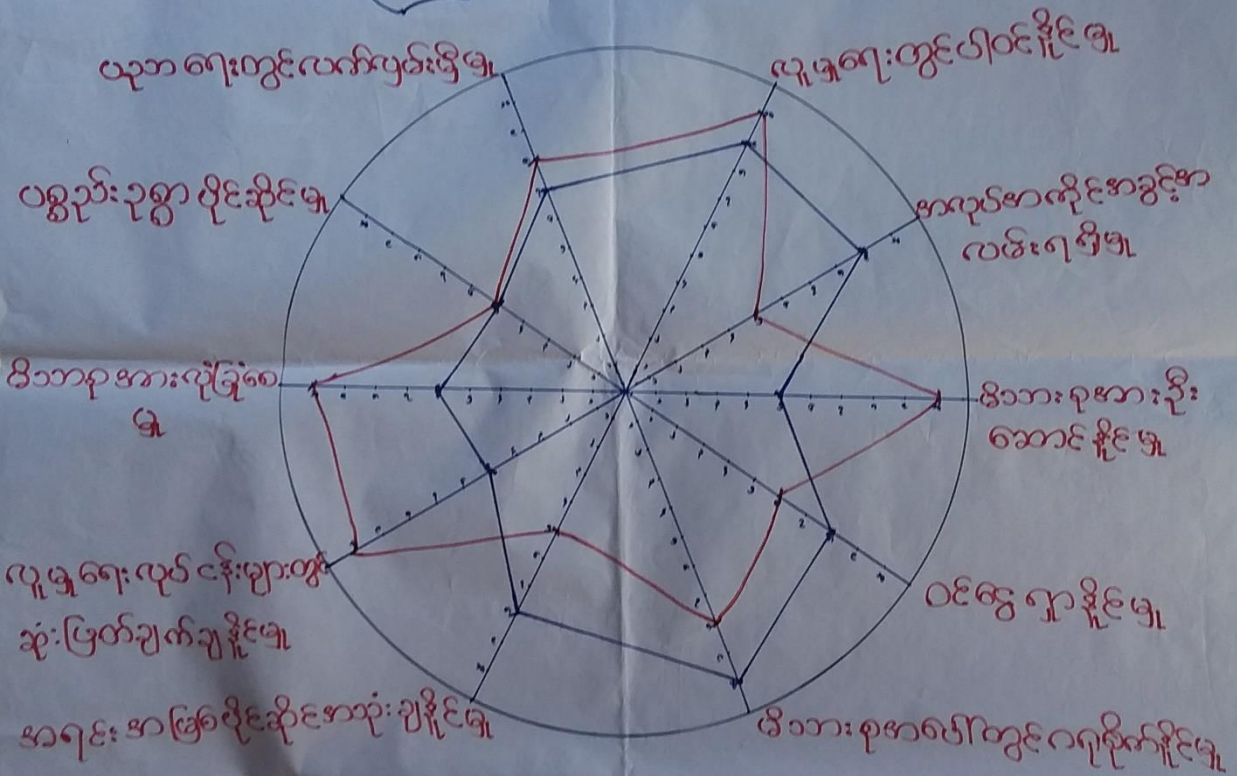 ပညာရေးတွင်လက်လှမ်းမှီမှု
လူမှုရေးတွင်ပါဝင်နိုင်မှု
ပစ္စည်းဥစ္စာပိုင်ဆိုင်မှု
အလုပ်အကိုင်အခွင့်အ
လမ်းရရှိမှု
မိသာစုအားလုံခြုံစေ
မှု
မိသားစုအားဦး
ဆောင်နိုင်မှု
လူမှုရေးလုပ်ငန်းများတွင်
ဆုံးဖြတ်ချက်ချနိုင်မှု
ဝင်ငွေရှာနိုင်မှု
အရင်းအမြစ်ပိုင်ဆိုင်အသုံးချနိုင်မှု
မိသားစုအပေါ်တွင်ဂရုစိုက်နိုင်မှု